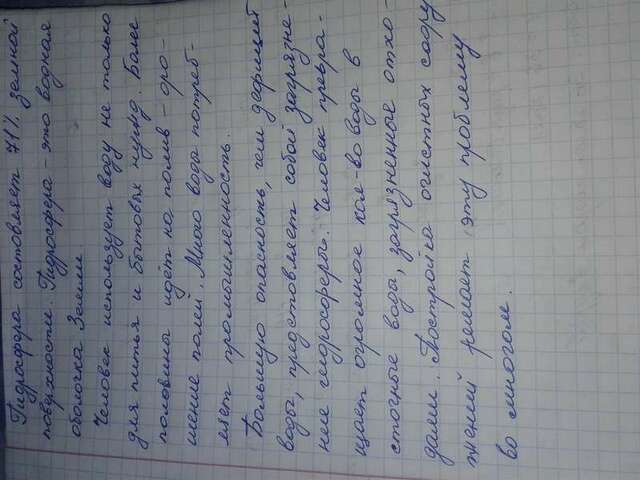 Гидросфера состовляет 71% земной
поверхности. Гидросфера - это водная
оболочка Земли.
Человек использует воду не только
для питья и бытовых нужд. Более
половины идёт на полив - оро-
шение полей. Много воды потреб-
ляет промышленность.
Большую опасность, чем дефицит
воды, предстовляет собой загрязне-
ние гидросферы. Человек превра-
щает огромное кол-во воды в
сточные воды, загрязненные отхо-
дами. Постройка очистных соору
жений решает эту проблему
во многом.